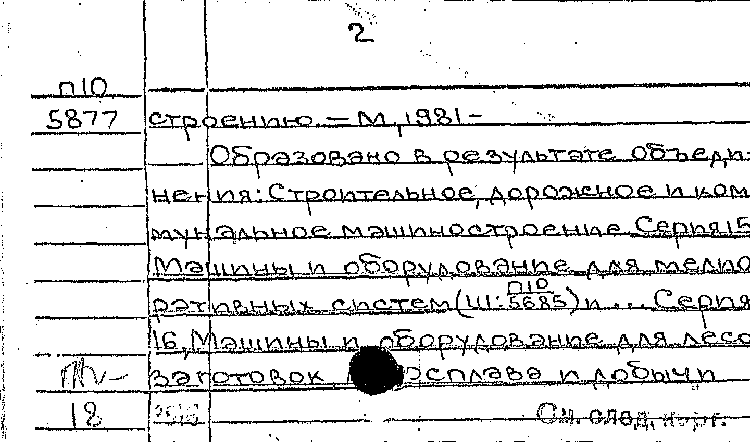 2
П10
5877 строению. – М, 1981 –
Образовано в результате объеди-
нения: Строительное, дорожное и ком
мунальное машиностроение. Серия 15
Машины и оборудование для мелио
ративных систем (Ш: П10/5685) и ... Серия
16, Машины и оборудование для лесо
заготовок сплава и добычи
18
См. след. карт.